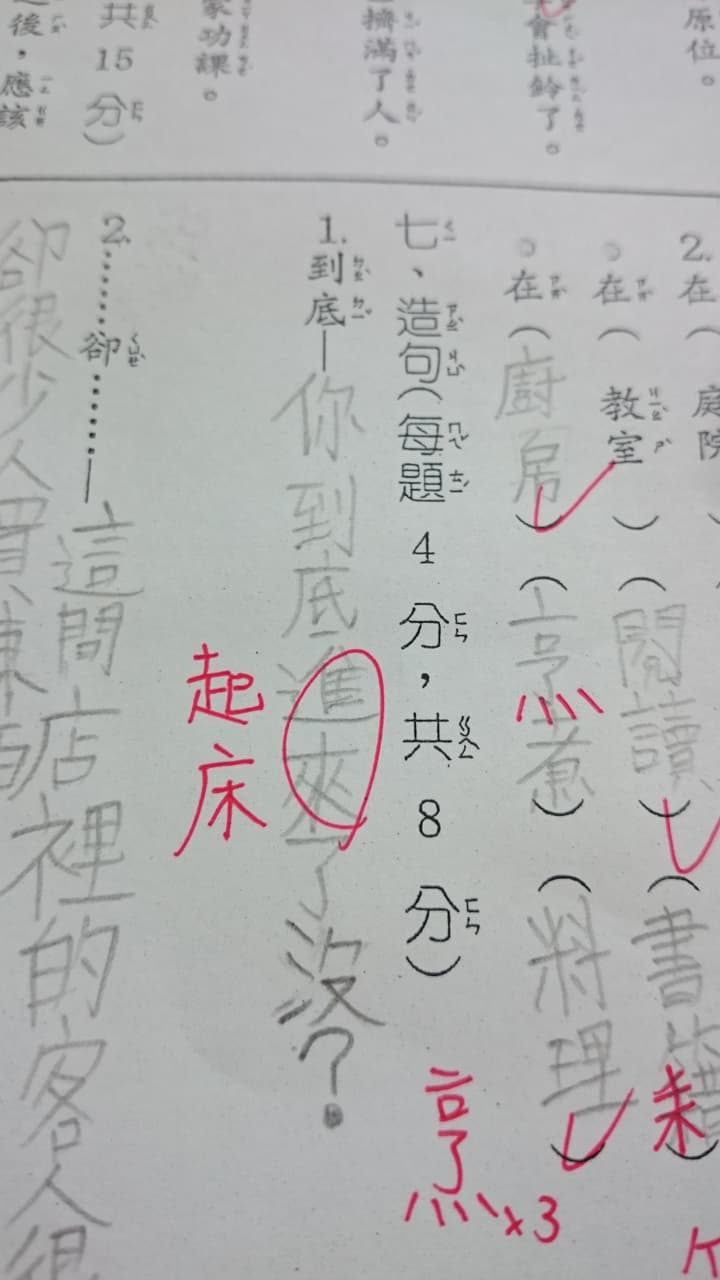 原位。
會扯鈴了。
擠滿了人。
家功課。
共15分)
後,應該
2.在(庭院
在(教室)(閱讀)(書籍)
在(廚房)(烹煮)(料理)
烹x3
七、造句(每題4分,共8分)
1.到底—你到底進來了沒?
起床
2.……卻……—這間店裡的客人很
卻很少人買東